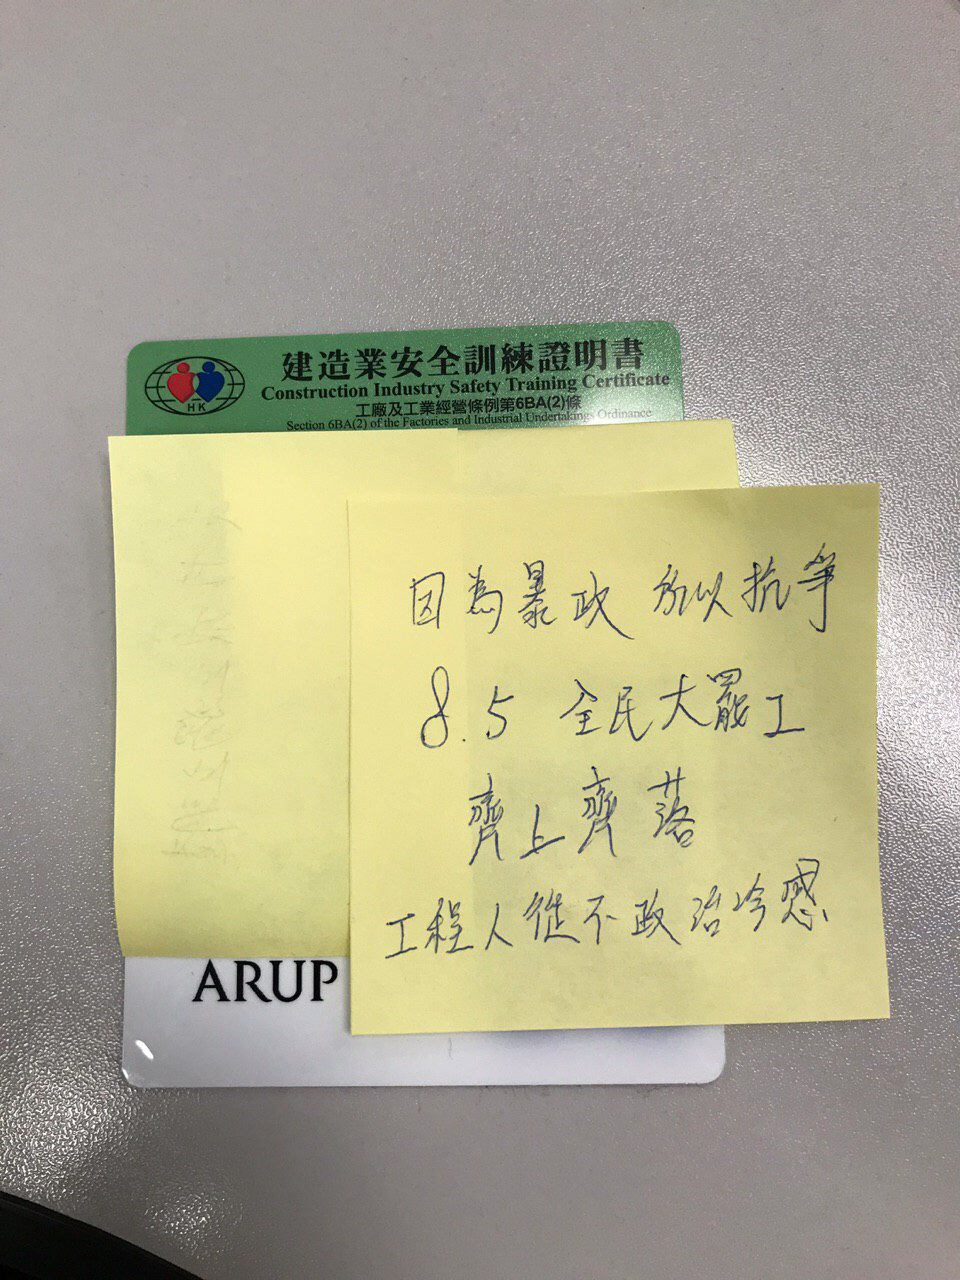 建造業安全訓練證明書
Construction Industry Safety Training Certificate
工廠及工業經營條例第6BA(2)條
Section 6BA(2) of the Factories and Industrial Undertakings Ordinance
HK
因為暴政 所以抗爭
8.5 全民大罷工
齊上齊落
工程人從不政治冷感
ARUP